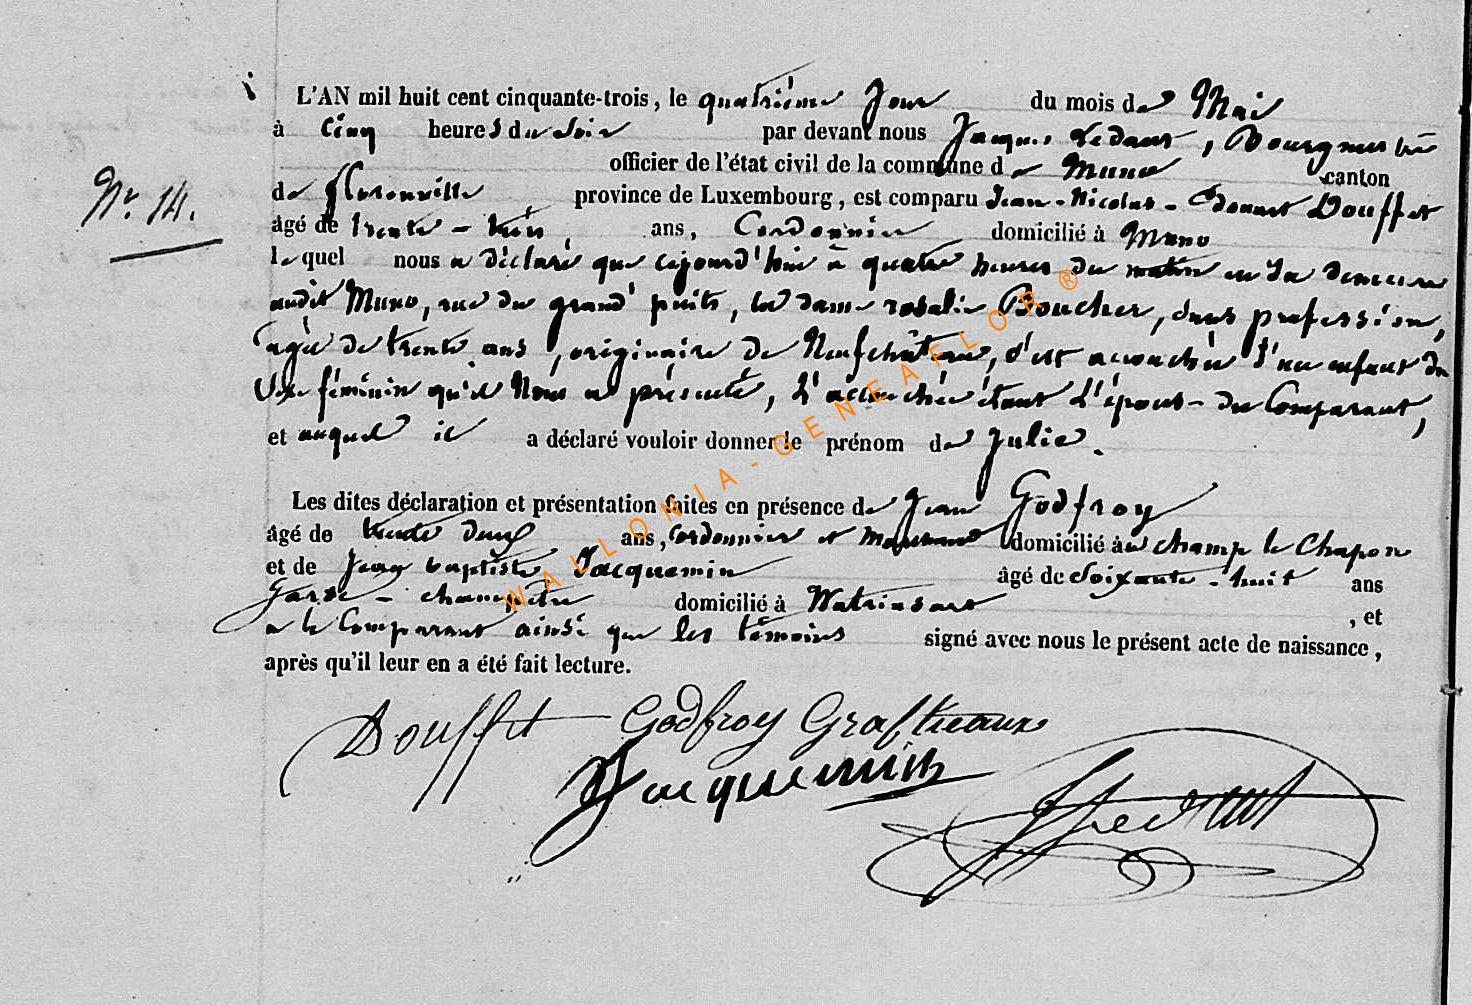 L'AN mil huit cent cinquante-trois, le quatrième Jour du mois de Mai
à Cinq heures du Soir par devant nous Jacques Ledant, Bourgmestre
officier de l'état civil de la commune de Muno canton
Nº 14. de Florenville province de Luxembourg, est comparu Jean-Nicolas- Douffet
âgé de trente-trois ans, Cordonnier domicilié à Muno
lequel nous a déclaré que cejourd'hui à quatre heures du matin en sa demeure
audit Muno, rue du grand puits, la dame rosalie Boucher, sans profession,
agée de trente ans, originaire de Neufchâteau, s'est accouchée d'un enfant du
Sexe féminin qu'il Nous a présenté, L'accouchée étant L'épouse du Comparant,
et auquel il a déclaré vouloir donner le prénom de Julie.
Les dites déclaration et présentation faites en présence de Jean Godfroy
âgé de trente deux ans, Cordonnier et domicilié à champ le Chapon
et de Jean baptiste Jacquemin âgé de Soixante-huit ans
Garde-champêtre domicilié à Watrinsart , et
a le Comparant ainsi que les témoins signé avec nous le présent acte de naissance,
après qu'il leur en a été fait lecture.
Douffet Godfroy Graftieaux
Jacquemin
JJ Ledant
WALLONIA-GENEAFLOR®